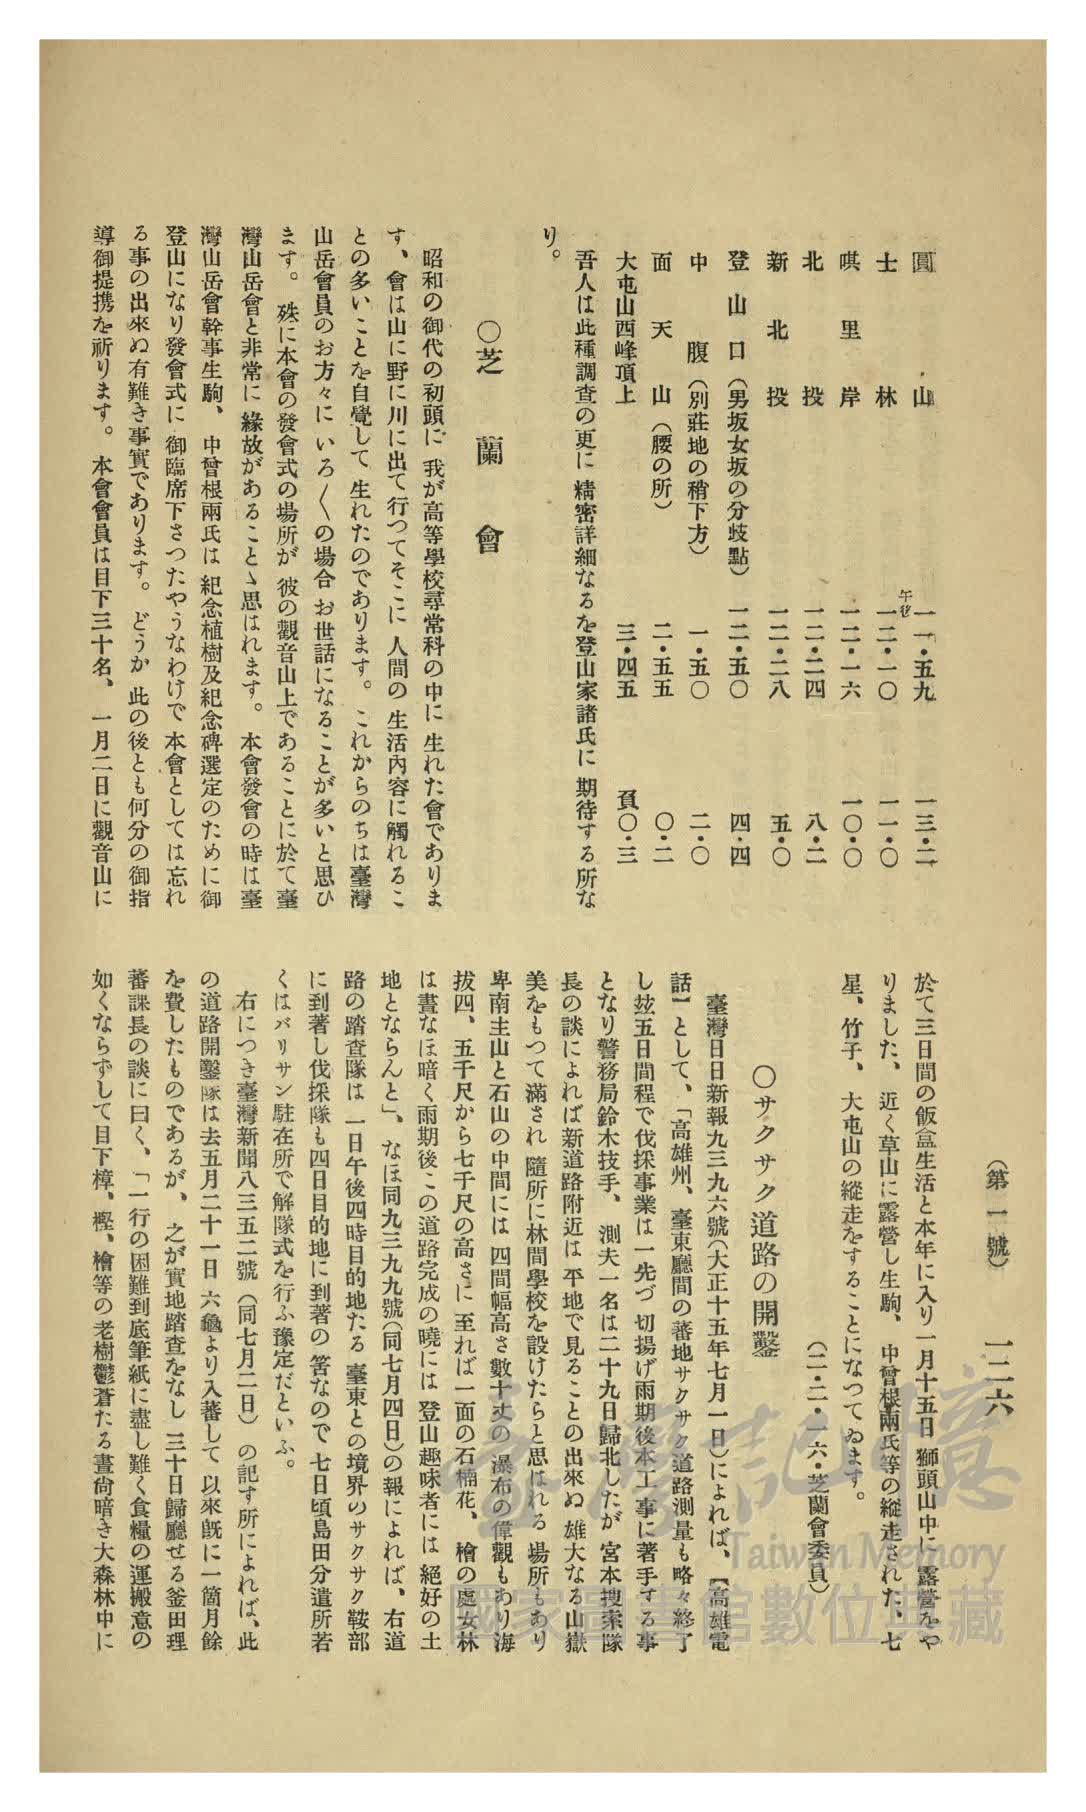 (第一號)　　一二六
圓山　一一・五九　一三・二
士林　午後一二・一〇　一一・〇
唭里岸　一二・一六　一〇・〇
北投　一二・二四　八・二
新北投　一二・二八　五・〇
登山口(男坂女坂の分歧點)　一二・五〇　四・四
中腹(別莊地の稍下方)　一・五〇　二・〇
面天山(腰の所)　二・五五　〇・二
大屯山西峰頂上　三・四五　負〇・三
吾人は此種調查の更に精密詳細なるを登山家諸氏に期待する所な
り。
〇芝蘭會
昭和の御代の初頭に我が高等學校尋常科の中に生れた會でありま
す、會は山に野に川に出て行つてそこに人間の生活內容に觸れるこ
との多いことを自覺して生れたのであります。これからのちは臺灣
山岳會員のお方々にいろ〱の場合お世話になることが多いと思ひ
ます。殊に本會の發會式の場所が彼の觀音山上であることに於て臺
灣山岳會と非常に緣故があることゝ思はれます。本會發會の時は臺
灣山岳會幹事生駒、中曾根兩氏は紀念植樹及紀念碑選定のために御
登山になり發會式に御臨席下さつたやうなわけで本會としては忘れ
る事の出來ぬ有難き事實であります。どうか此の後とも何分の御指
導御提携を祈ります。本會會員は目下三十名、一月二日に觀音山に
於て三日間の飯盒生活と本年に入り一月十五日獅頭山中に露營をや
りました、近く草山に露營し生駒、中曾根兩氏等の縱走された、七
星、竹子、大屯山の縱走をすることになつてゐます。
(二・二・一六・芝蘭會委員)
〇サクサク道路の開鑿
臺灣日日新報九三九六號(大正十五年七月一日)によれば、【高雄電
話】として、「高雄州、臺東廳間の蕃地サクサク道路測量も略々終了
し玆五日間程で伐採事業は一先づ切揚げ雨期後本工事に著手する事
となり警務局鈴木技手、測夫一名は二十九日歸北したが宮本搜索隊
長の談によれば新道路附近は平地で見ることの出來ぬ雄大なる山嶽
美をもつて滿され隨所に林間學校を設けたらと思はれる場所もあり
卑南主山と石山の中間には四間幅高さ數十丈の瀑布の偉觀もあり海
拔四、五千尺から七千尺の高さに至れば一面の石楠花、檜の處女林
は晝なほ暗く雨期後この道路完成の曉には登山趣味者には絕好の土
地とならんと」、なほ同九三九九號(同七月四日)の報によれば、右道
路の踏查隊は一日午後四時目的地たる臺東との境界のサクサク鞍部
に到著し伐採隊も四日目的地に到著の筈なので七日頃島田分遣所若
くはバリサン駐在所で解隊式を行ふ豫定だといふ。
右につき臺灣新聞八三五二號(同七月二日)の記す所によれば、此
の道路開鑿隊は去五月二十一日六龜より入蕃して以來旣に一箇月餘
を費したものであるが、之が實地踏查をなし三十日歸廳せる釜田理
蕃課長の談に曰く、「一行の困難到底筆紙に盡し難く食糧の運搬意の
如くならずして目下樟、樫、檜等の老樹鬱蒼たる晝尙暗き大森林中に
臺灣記憶
Taiwan Memory
國家圖書館數位典藏